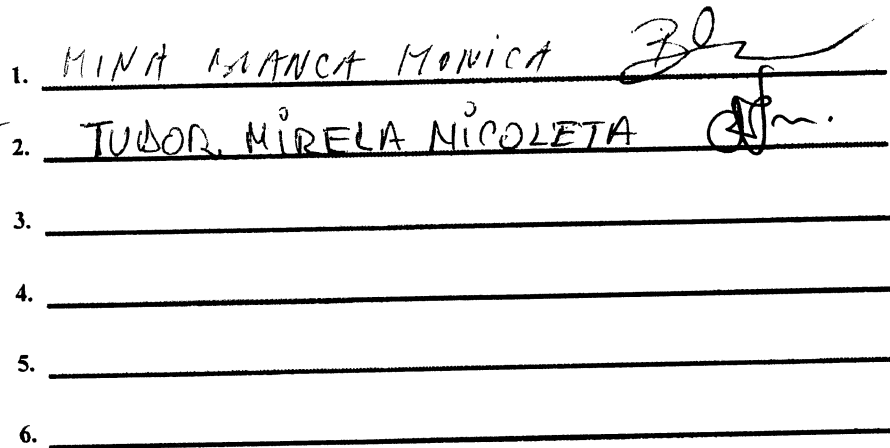 1. MINA BIANCA MONICA
2. TUDOR MIRELA NICOLETA
3.
4.
5.
6.